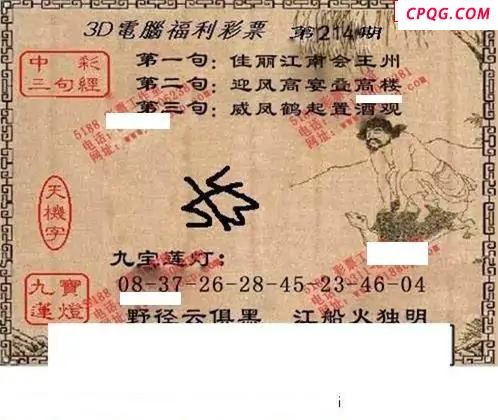 CPQG.COM
3D電腦福利彩票 第214期
中彩
三句經
第一句：佳丽江南会王州
第二句：迎风高宴叠高楼
第三句：威凤鹤起置酒观
天機字
九宝莲灯：
九寶蓮燈
08-37-26-28-45-23-46-04
野径云俱黑 江船火独明
i